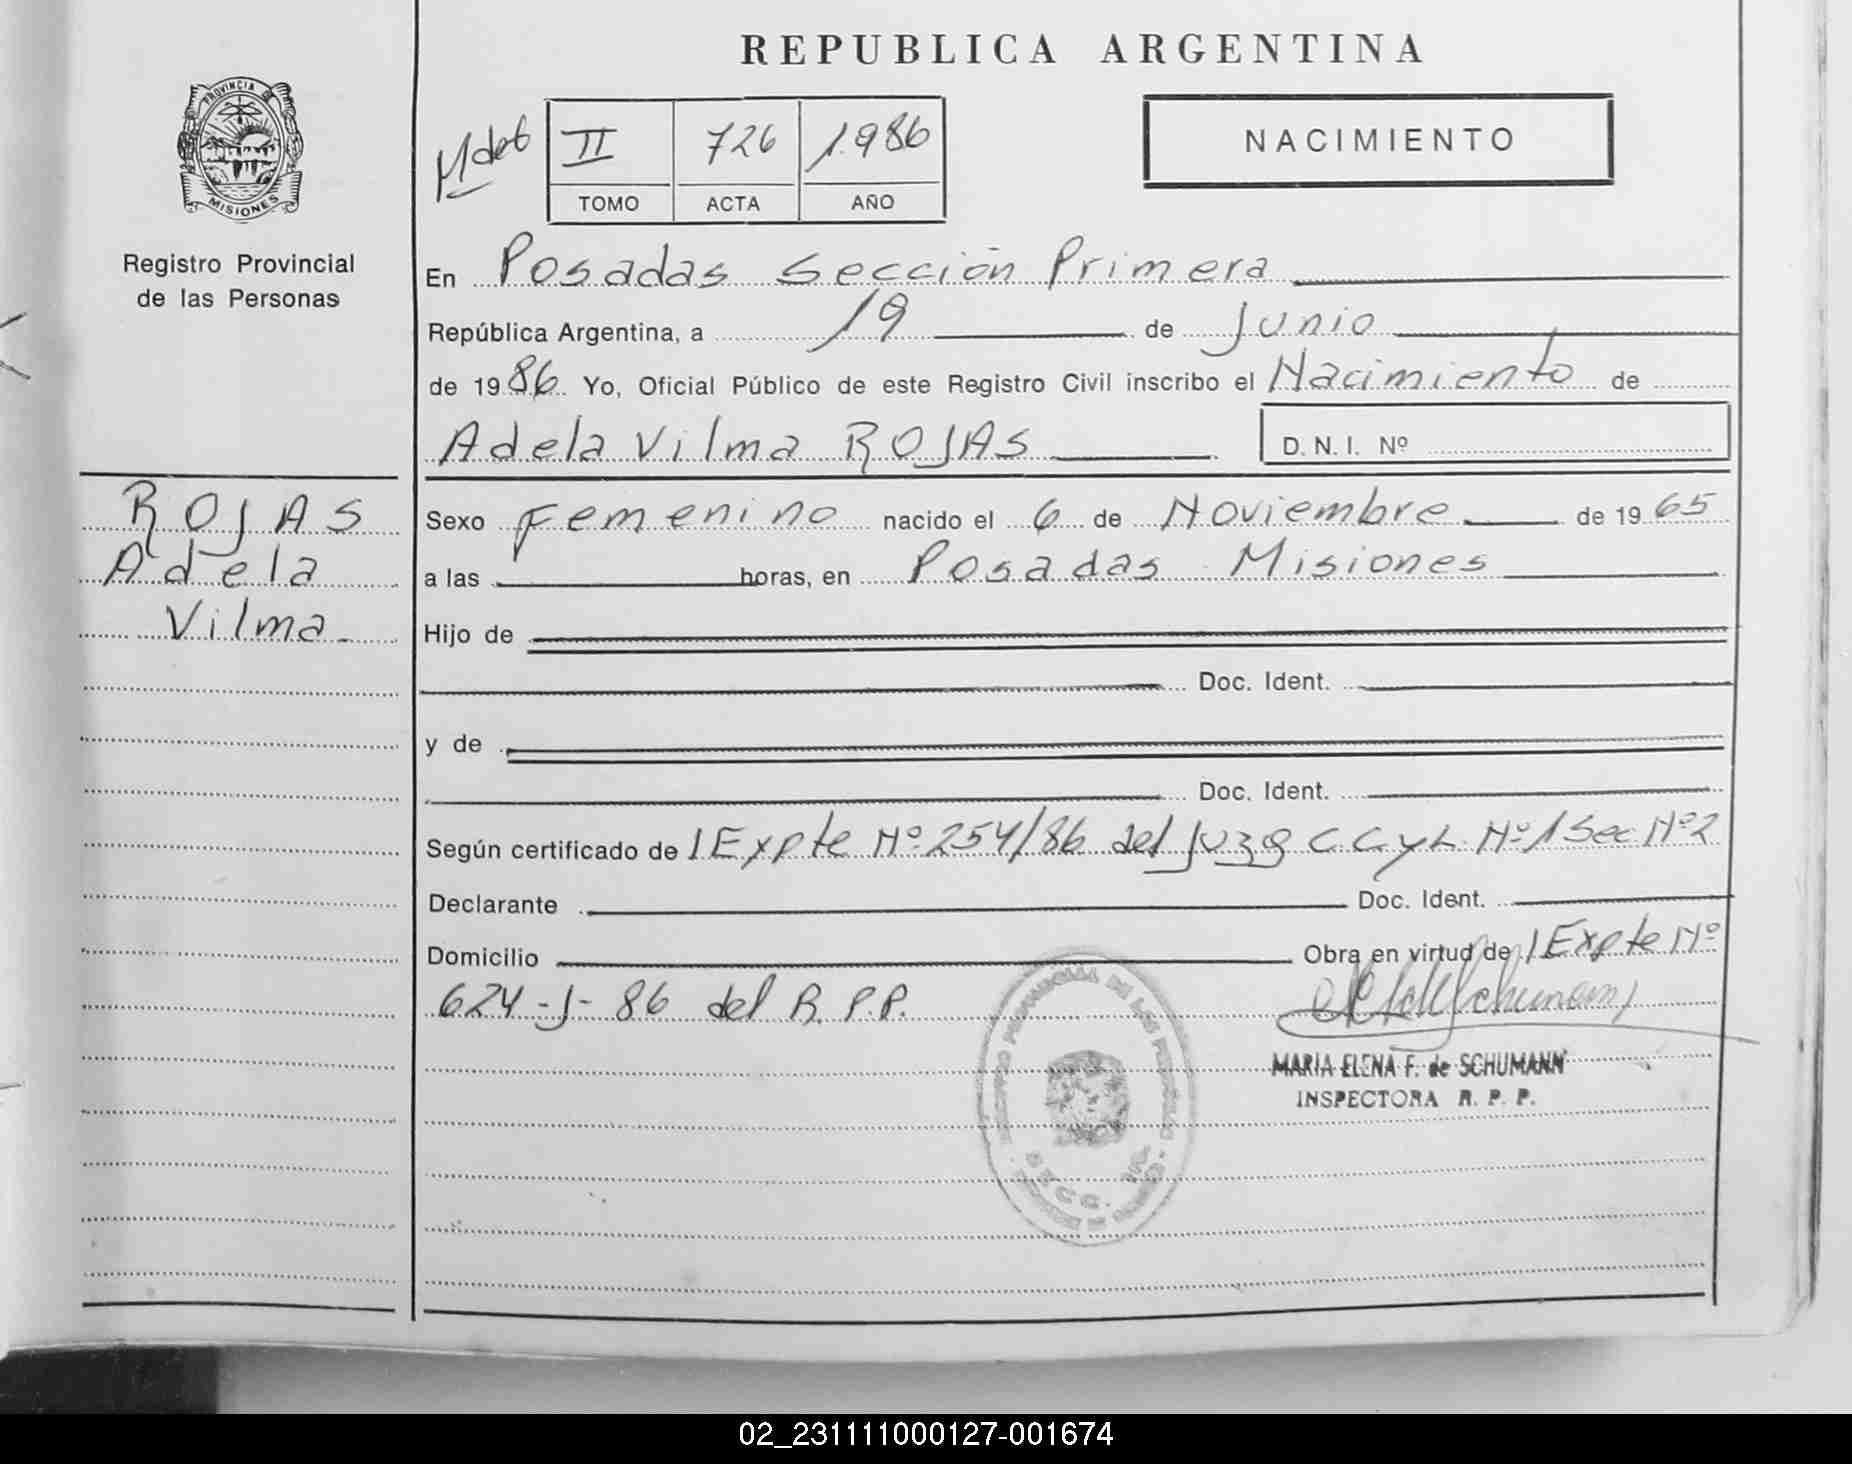 REPUBLICA ARGENTINA
PROVINCIA DE
MISIONES
Registro Provincial
de las Personas
II 726 1.986
TOMO ACTA AÑO
NACIMIENTO
En Posadas Sección Primera
República Argentina, a 19 de Junio
de 1986 Yo, Oficial Público de este Registro Civil inscribo el Nacimiento de
Adela Vilma ROJAS D.N.I. Nº
ROJAS
Adela
Vilma
Sexo Femenino nacido el 6 de Noviembre de 1965
a las horas, en Posadas Misiones
Hijo de
Doc. Ident.
y de
Doc. Ident.
Según certificado de Expte Nº 254/86 del Juzg C.C.y L. Nº 1 Sec Nº 2
Declarante Doc. Ident.
Domicilio Obra en virtud de Expte Nº
624-J-86 del R.P.P.
MARIA ELENA F. de SCHUMANN
INSPECTORA R. P. P.
02_231111000127-001674